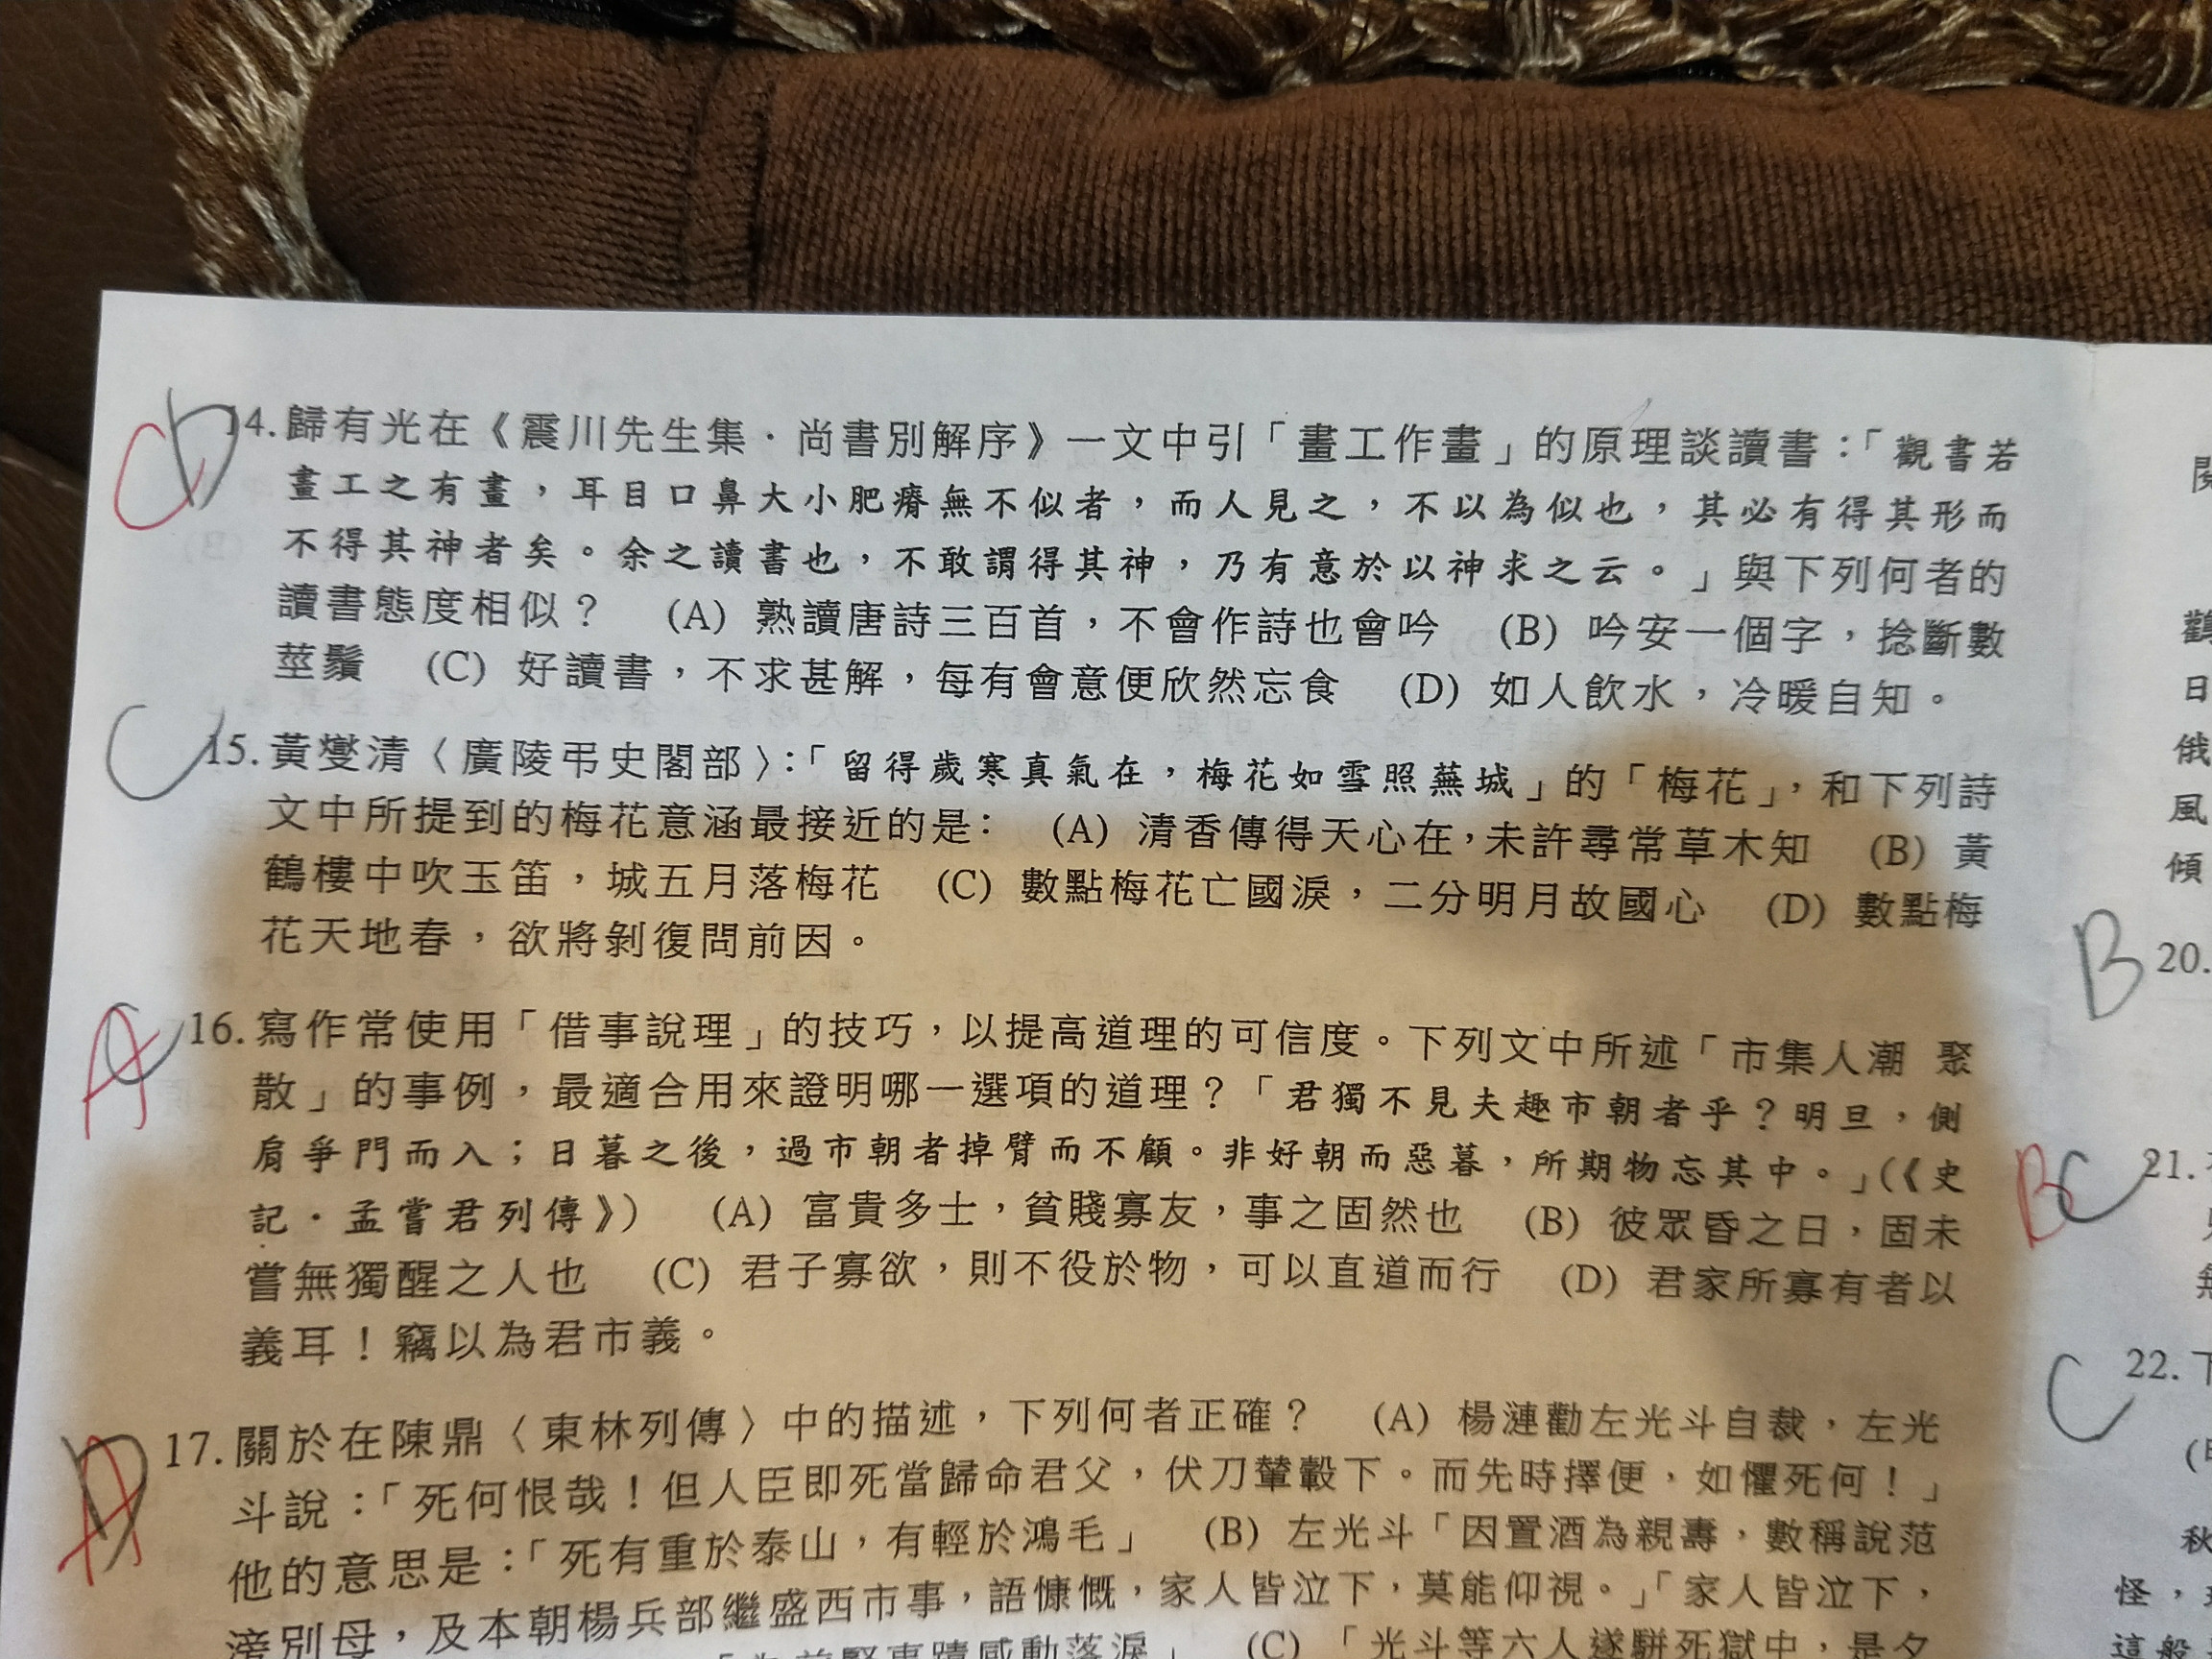 D
C
14. 歸有光在《震川先生集．尚書別解序》一文中引「畫工作畫」的原理談讀書：「觀書若
畫工之有畫，耳目口鼻大小肥瘠無不似者，而人見之，不以為似也，其必有得其形而
不得其神者矣。余之讀書也，不敢謂得其神，乃有意於以神求之云。」與下列何者的
讀書態度相似？ (A) 熟讀唐詩三百首，不會作詩也會吟 (B) 吟安一個字，捻斷數
莖鬚 (C) 好讀書，不求甚解，每有會意便欣然忘食 (D) 如人飲水，冷暖自知。
C
15. 黃燮清〈廣陵弔史閣部〉：「留得歲寒真氣在，梅花如雪照蕪城」的「梅花」，和下列詩
文中所提到的梅花意涵最接近的是： (A) 清香傳得天心在，未許尋常草木知 (B) 黃
鶴樓中吹玉笛，城五月落梅花 (C) 數點梅花亡國淚，二分明月故國心 (D) 數點梅
花天地春，欲將剝復問前因。
A
16. 寫作常使用「借事說理」的技巧，以提高道理的可信度。下列文中所述「市集人潮 聚
散」的事例，最適合用來證明哪一選項的道理？「君獨不見夫趣市朝者乎？明旦，側
肩爭門而入；日暮之後，過市朝者掉臂而不顧。非好朝而惡暮，所期物忘其中。」(《史
記．孟嘗君列傳》) (A) 富貴多士，貧賤寡友，事之固然也 (B) 彼眾昏之日，固未
嘗無獨醒之人也 (C) 君子寡欲，則不役於物，可以直道而行 (D) 君家所寡有者以
義耳！竊以為君市義。
A
D
17. 關於在陳鼎〈東林列傳〉中的描述，下列何者正確？ (A) 楊漣勸左光斗自裁，左光
斗說：「死何恨哉！但人臣即死當歸命君父，伏刀輦轂下。而先時擇便，如懼死何！」
他的意思是：「死有重於泰山，有輕於鴻毛」 (B) 左光斗「因置酒為親壽，數稱說范
滂別母，及本朝楊兵部繼盛西市事，語慷慨，家人皆泣下，莫能仰視。」「家人皆泣下，
事蹟感動落淚」 (C) 「光斗等六人遂駢死獄中，是夕
日
俄
風
傾
B
20.
B
C
21.
C
22. 下
秋
怪，
這般